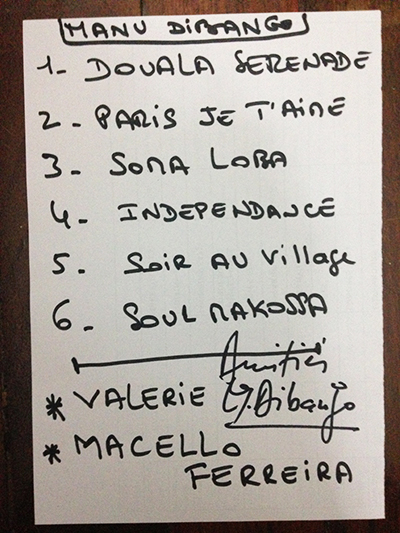 MANU DIBANGO
1- DOUALA SERENADE
2- PARIS JE T'AIME
3- SOMA LOBA
4- INDEPENDANCE
5. SOIR AU Village
6- SOUL MAKOSSA
Amitiés
* VALERIE M. Dibango
* MACELLO
FERREIRA